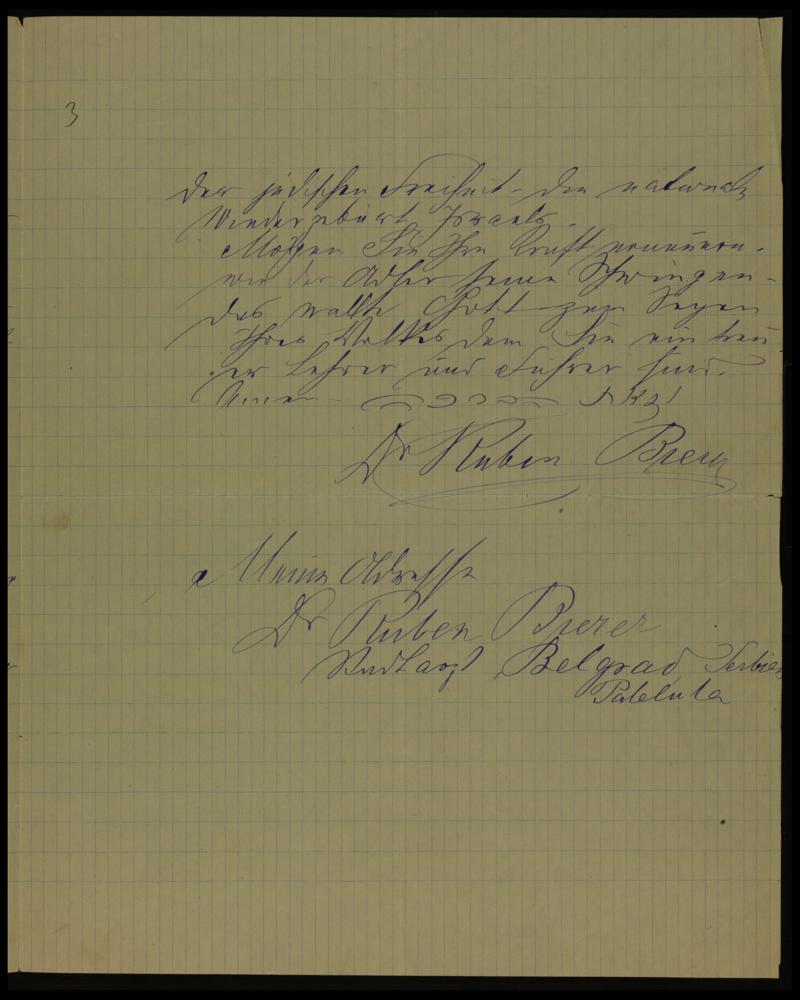 3
der jüdischen Freiheit – der nationalen
Wiedergeburt Israels.
Mögen Sie Ihre Kraft erneuern –
wie der Adler seine Schwingen –
das walte Gott zum Segen
Ihres Volkes dem Sie ein treu
er Lehrer und Führer sind.
Amen –
Dr Ruben Bierer
Meine Adresse
Dr Ruben Bierer
Stadtarzt Belgrad Serbien
Palelula